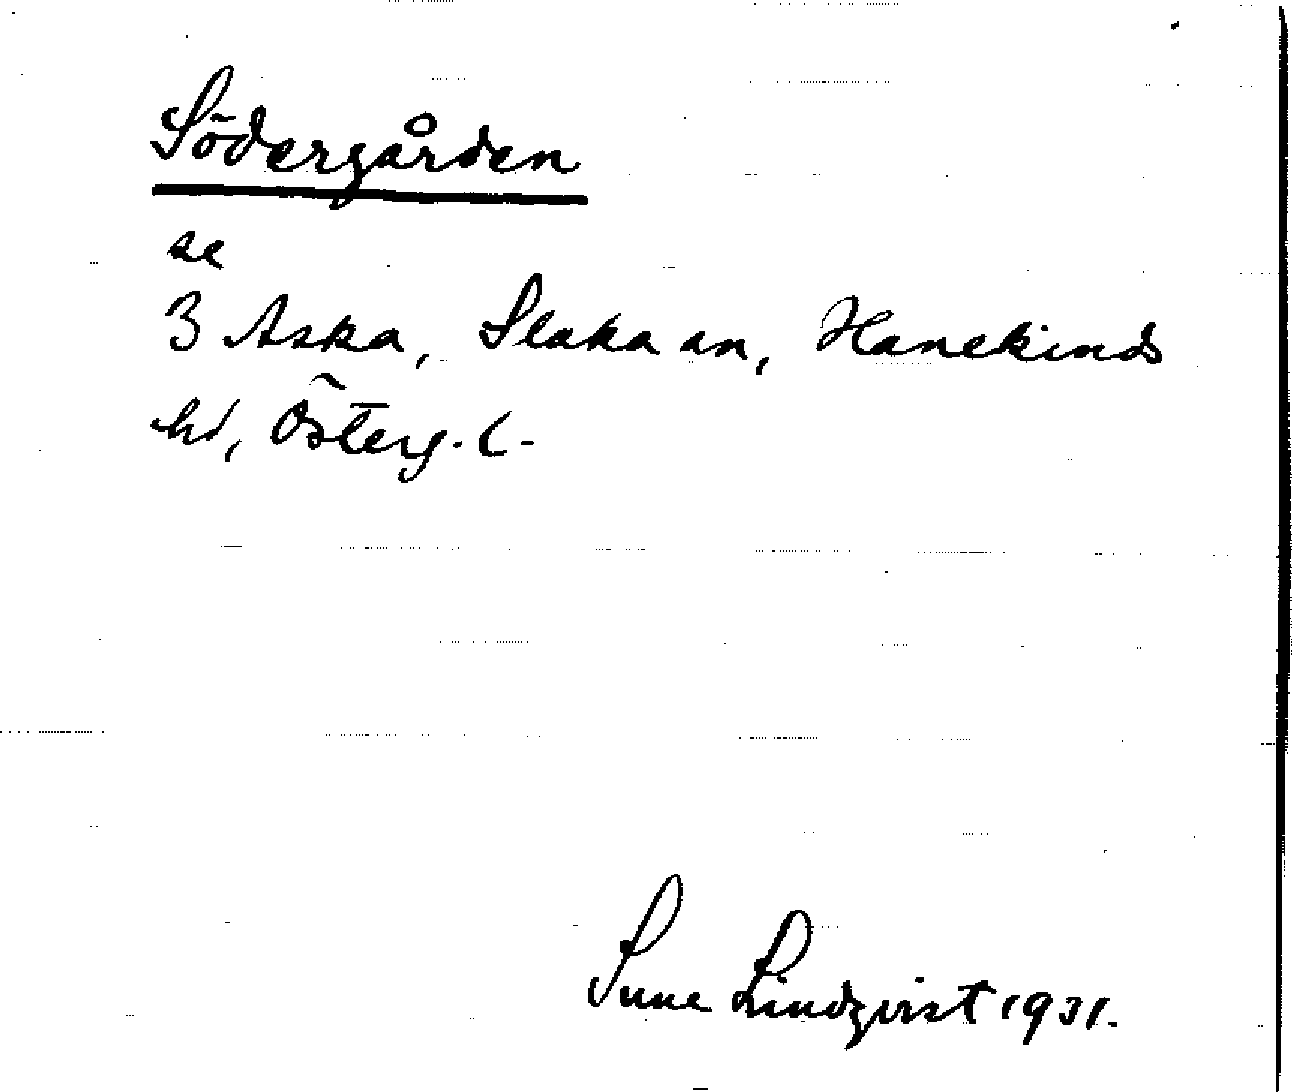 Södergården
se
3 Aska, Slaka sn, Hanekinds
hd, Österg. l.
Sune Lindqvist 1931.